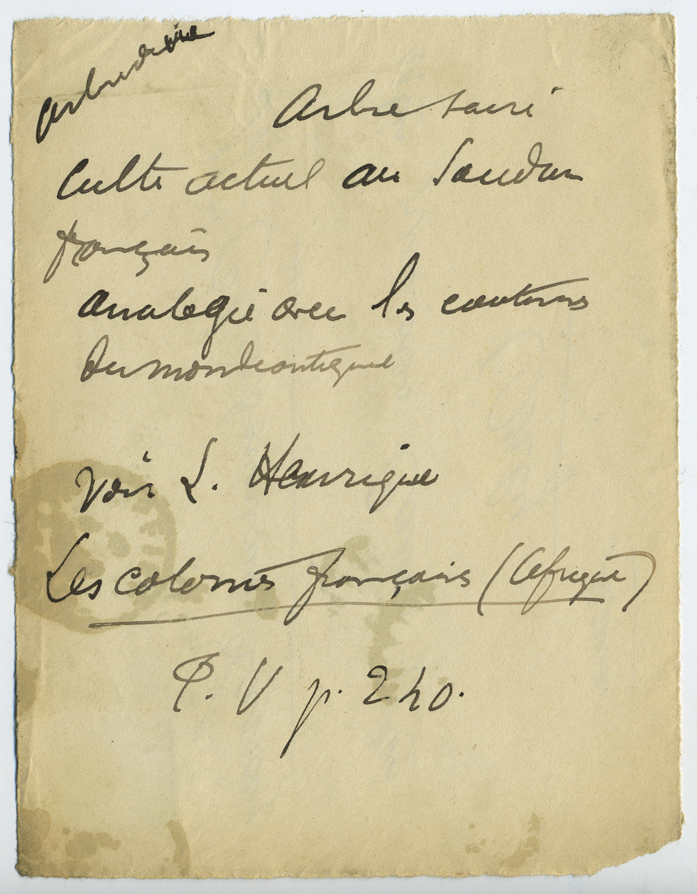 arbre de vie
Arbre sacré
Culte actuel au Soudan
français
analogie avec les coutumes
du monde antique
voir L. Henrique
Les colonies françaises (Afrique)
T. V p. 240.